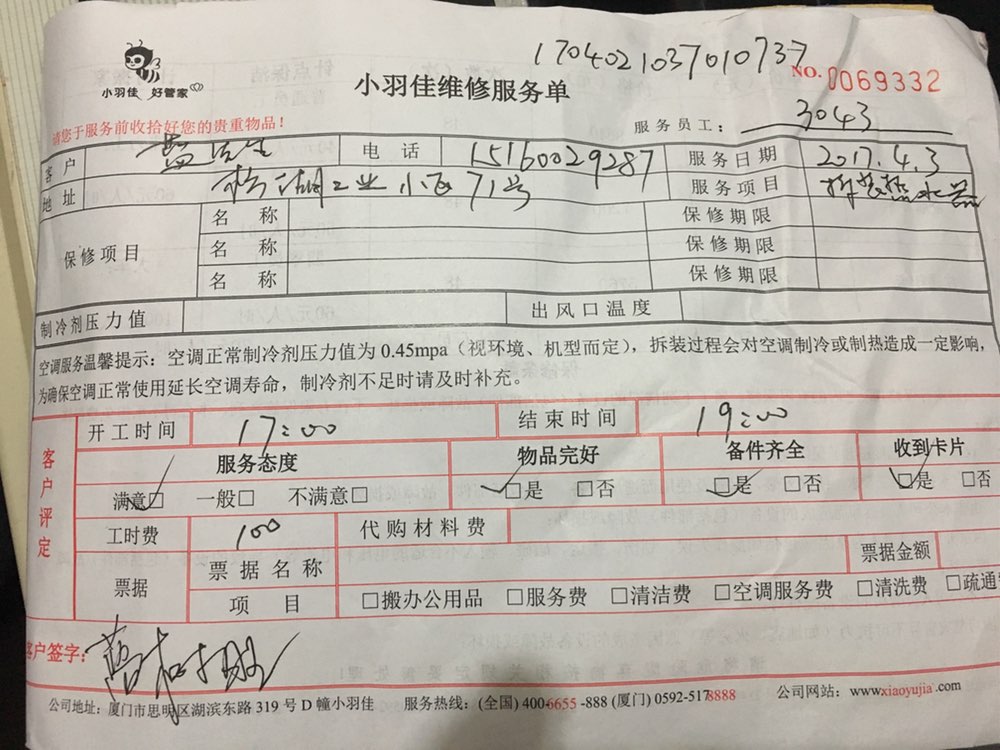 170402103701073 7
小羽佳 好管家
小羽佳维修服务单
NO. 0069332
请您于服务前收拾好您的贵重物品!
服务员工: 3043
客户 先生 电话 15160029287 服务日期 2017.4.3
地址 湖工业小区71号 服务项目 拆装热水器
保修项目 名称 保修期限
名称 保修期限
名称 保修期限
制冷剂压力值 出风口温度
空调服务温馨提示:空调正常制冷剂压力值为0.45mpa(视环境、机型而定),拆装过程会对空调制冷或制热造成一定影响,
为确保空调正常使用延长空调寿命,制冷剂不足时请及时补充。
客户评定
开工时间 17:00 结束时间 19:00
服务态度 物品完好 备件齐全 收到卡片
满意□ 一般□ 不满意□ □是 □否 □是 □否 □是 □否
工时费 100 代购材料费
票据 票据名称 票据金额
项目 □搬办公用品 □服务费 □清洁费 □空调服务费 □清洗费 □疏通
客户签字:
公司地址:厦门市思明区湖滨东路319号D幢小羽佳 服务热线:(全国)400-6655-888 (厦门)0592-5178888 公司网站:www.xiaoyujia.com